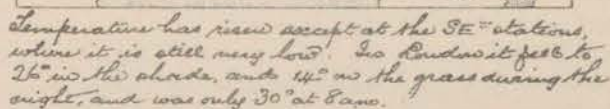 Temperature has risen except at the SE⁼ stations,
where it is still very low. In London it fell to
26° in the shade, and 14° on the grass during the
night, and was only 30° at 8 am.